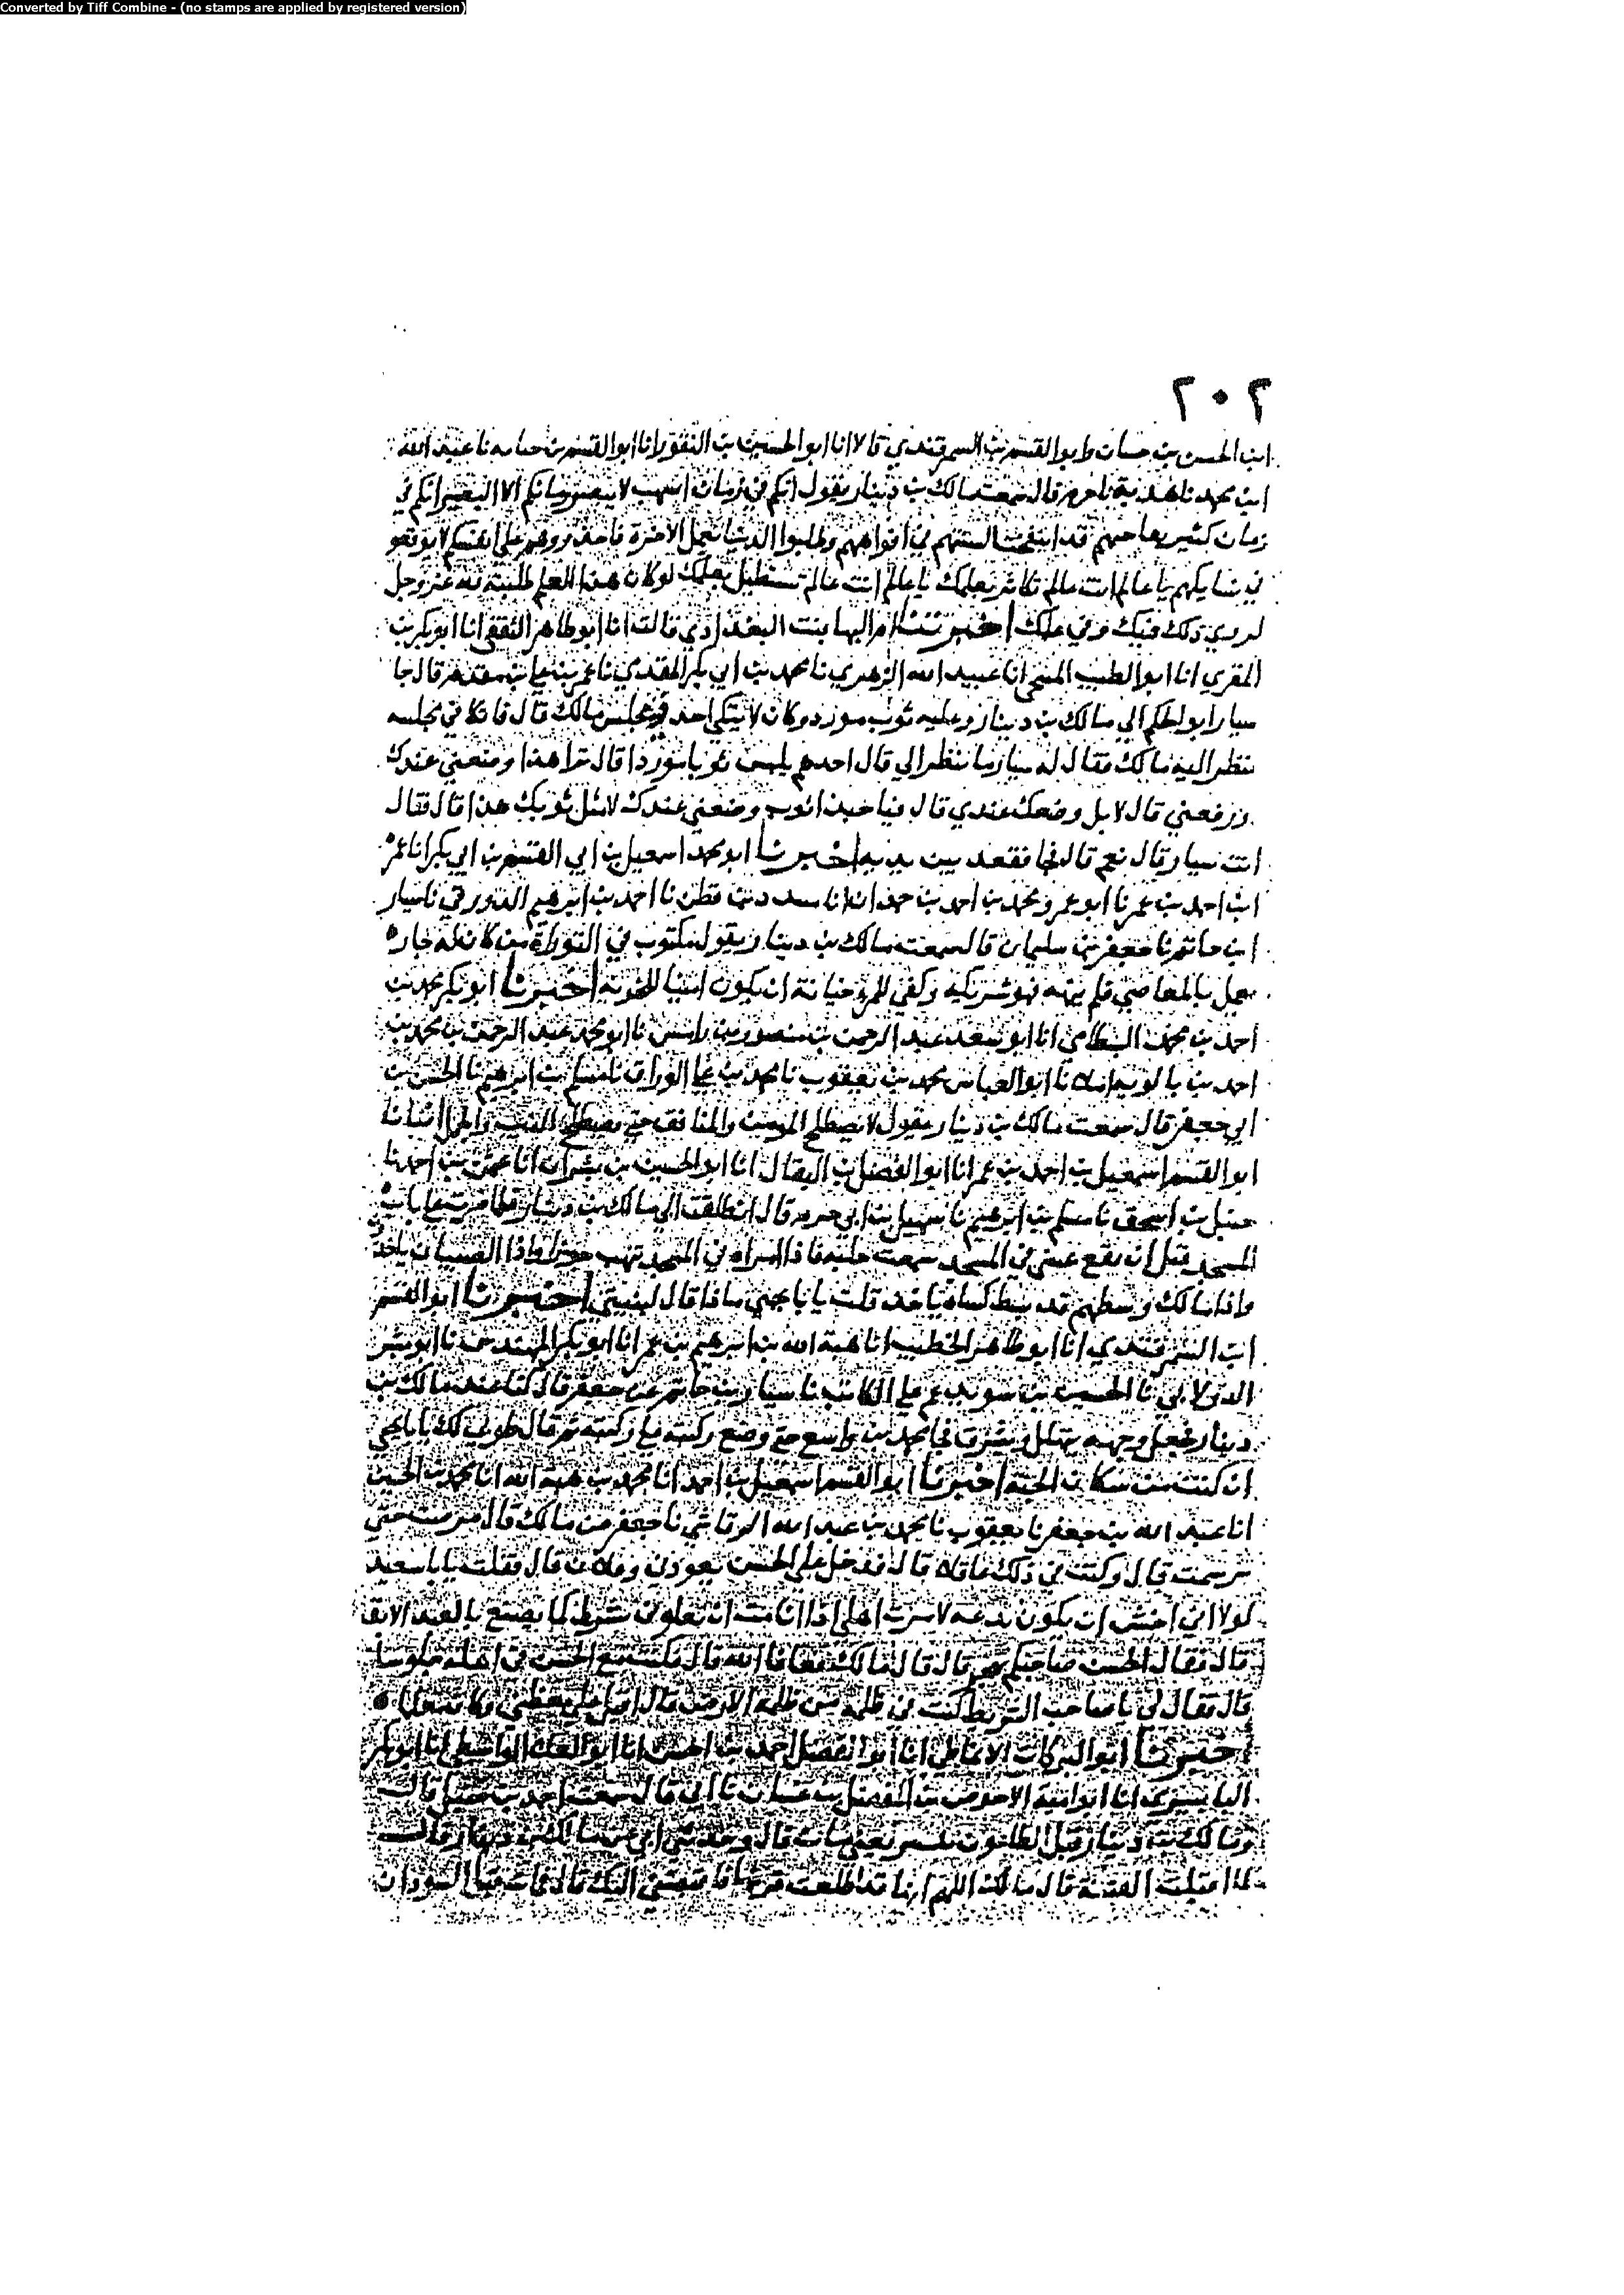 Converted by Tiff Combine - (no stamps are applied by registered version)
٢٠٢
ابن الحسن بن وابو القسم بن السمرقندي قالا انا ابو الحسين بن النقور انا ابو القسم بن حبابه نا عبد الله
ابن محمد نا هدبة نا حزم قال سمعت مالك بن دينار يقول انكم في زمان اشهب لا يبصر زمانكم الا البصير انكم في
زمان كثير قد انتفخت السنتهم في افواههم وطلبوا الدنيا بعمل الاخرة فاحذروهم على انفسكم لا يوقعو
في شبا يكهم يا عالم انت عالم تكاثر بعلمك يا عالم انت عالم تستطيل بعلمك لو كان هذا العلم طلبته لله عز وجل
لروي ذلك فيك وفي عملك اخبرتنا ام البها بنت البغدادي قالت انا ابو طاهر الثقفي انا ابو بكر بن
المقري انا ابو الطيب المنبجي انا عبيد الله الزهري نا محمد بن ابي بكر المقدمي نا عمر بن علي بن مقدم قال جا
سيار ابو الحكم الي مالك بن دينار وعليه ثوب مورد وكان لا يتكي احد في مجلس مالك قال فاتكا في مجلسه
ينظر اليه مالك فقال له سيار ما تنظر الي قال احدهم يلبس ثوبا موردا قال ترا هذا وضعني عندك
ورفعني قال لا بل وضعك عندي قال فيا حبذا ثوب وضعني عندك لامثل ثوبك هذا قال فقال
انت سيار قال نعم قال فجا فقعد بين يديه اخبرنا ابو محمد اسمعيل بن ابي القسم بن ابي بكر انا عمر
ابن احمد بن عمر نا ابو عمرو محمد بن احمد بن حمدان انا قطن نا احمد بن ابرهيم الدورقي نا سيار
ابن حاتم نا جعفر بن سليمان قال سمعت مالك بن دينار يقول مكتوب في التوراة من كان له جار
يعمل بالمعاصي فلم ينهه فهو شريكه وكفي للمرء خيانة ان يكون امينا للخونة اخبرنا ابو بكر محمد بن
احمد بن محمد البسطامي انا ابو سعد عبد الرحمن بن منصور بن رامس نا ابو محمد عبد الرحمن بن محمد بن
احمد بن بالويه املا نا ابو العباس محمد بن يعقوب نا محمد بن علي الوراق نا مسلم بن ابرهيم نا الحسن بن
ابي جعفر قال سمعت مالك بن دينار يقول لا يصطلح المومن والمنافق حتي يصطلح الذيب والحمل انبانا
ابو القسم اسمعيل بن احمد بن عمر انا ابو الفضل بن البقال انا ابو الحسين بن بشران انا عثمن بن احمد نا
حنبل بن اسحق نا مسلم بن ابرهيم نا سهيل بن ابي حزم قال انطلقت الي مالك بن دينار فلما صرت علي باب
المسجد قبل ان يقع عيني في المسجد سمعت جلبه فاذا امراه في المسجد تنهب جوزا واذا الصبيان ياخذون
واذا مالك وسطهم قد بسط كساه ياخذ قلت يا با يحيي ما ذا قال لبنيتي اخبرنا ابو القسم
ابن السمرقندي انا ابو طاهر الخطيب انا هبة الله بن ابرهيم بن عمر انا ابو بكر المهندس نا ابو بشر
الدولابي نا الحسين بن علي الكاتب نا سيار بن حاتم عن جعفر قال كنا عند مالك بن
دينار فجعل وجهه يتهلل ويشرق فجا محمد بن واسع حتي وضع ركبته مع ركبته ثم قال طوبي لك يا با يحيي
ان كنت من سكان الجنة اخبرنا ابو القسم اسمعيل بن احمد انا محمد بن هبة الله انا محمد بن الحسين
انا عبد الله بن جعفر نا يعقوب نا محمد بن عبد الله الرقاشي نا جعفر عن مالك قال مرضت حتي
برسمت قال وكنت في ذلك عاقلا قال فدخل علي الحسن يعودني قال فقلت يا با سعيد
لولا اني اخشي ان يكون بدعه لامرت اهلي اذا انا مت ان يغلوني بشريط كما يصنع بالعبد الابق
قال فقال الحسن صاحبكم يهجر قال قال مالك فعافانا الله قال مع الحسن في اهله جلوسا
قال فقال لي يا صاحب الشريط كنت في ظلمه من ظلمة الارض قال اقبل علي يعظني
اخبرنا ابو البركات الانماطي انا ابو الفضل احمد بن الحسن انا ابو العلا الواسطي انا ابو بكر
البابسيري انا ابو امية الاحوص بن المفضل بن غسان نا ابي قال سمعت احمد بن حنبل قال
ومالك بن دينار قبل الطاعون يعني مات قال وحدثني ابي عن مالك بن دينار قال
لما اقبلت الفتنة قال مالك اللهم انها قد طلعت فاقبضني اليك قال فمات قبل السودان